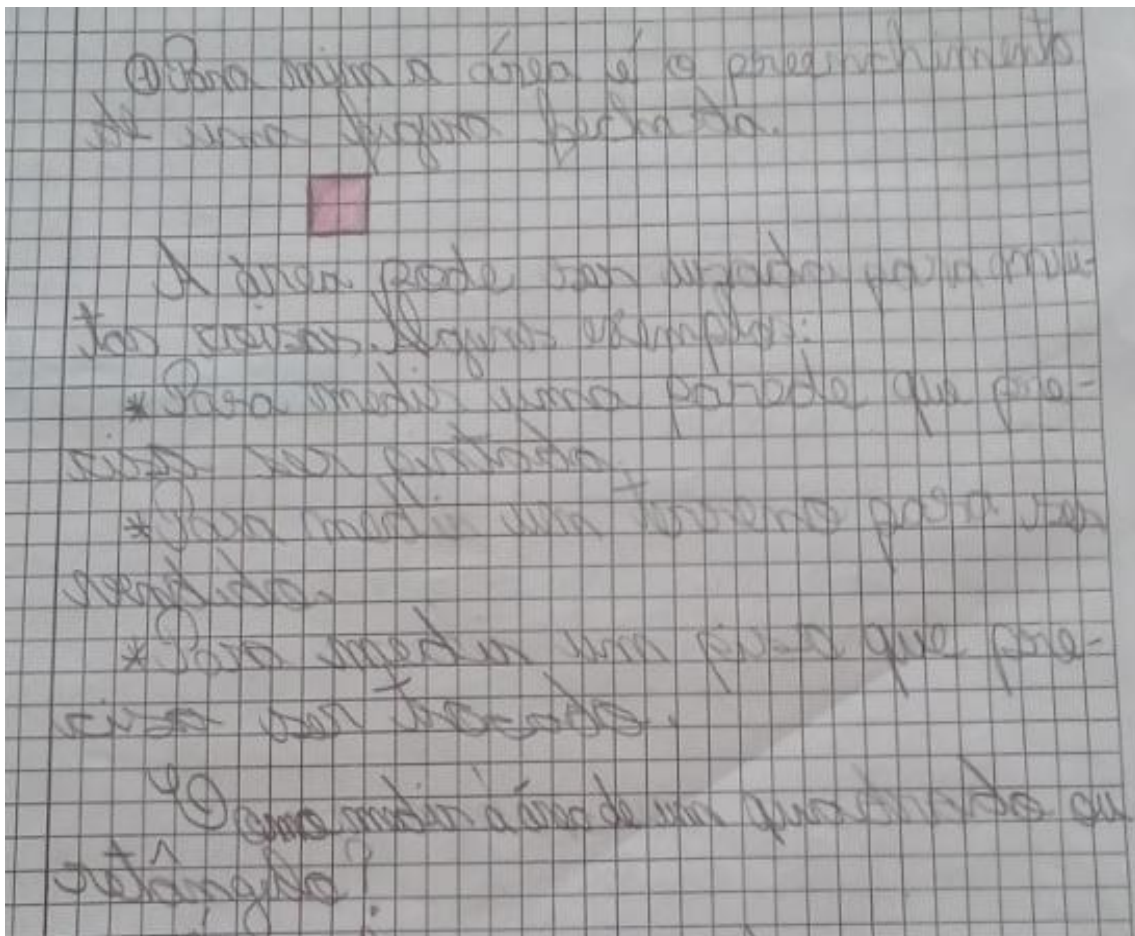 ① Para mim a área é o preenchimento
de uma figura fechada.
A área pode ser usada para mui-
tas coisas. Alguns exemplos:
* Para medir uma parede que pre-
cisa ser pintada.
* Para medir um terreno para ser
vendido.
* Para medir um piso que pre-
cisa ser trocado.
Como medir a área de um quadrado ou
retângulo?